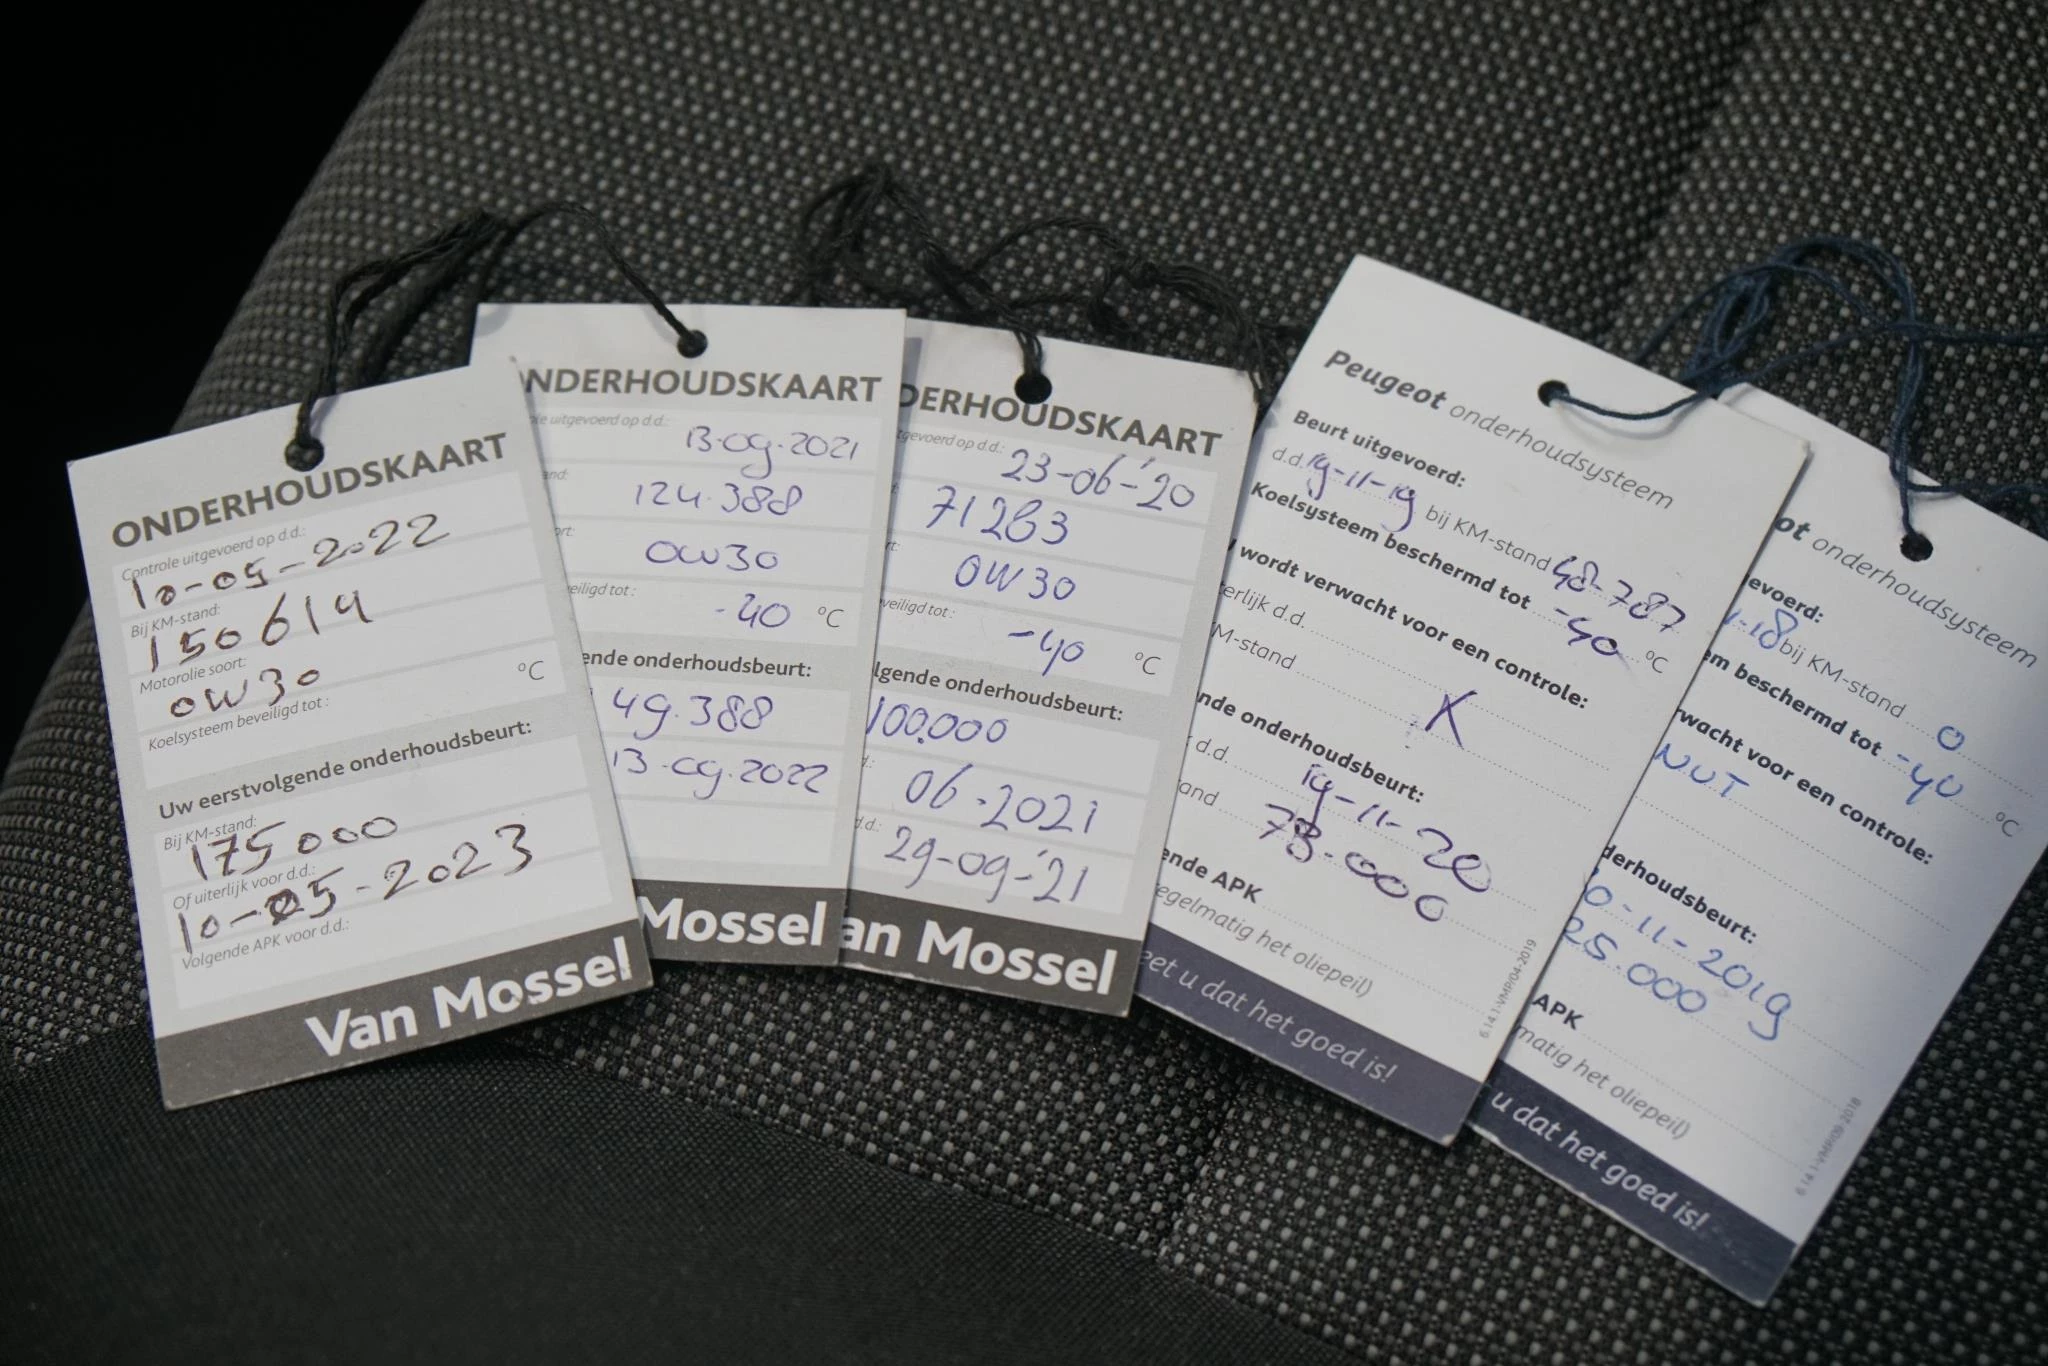 ONDERHOUDSKAART
Controle uitgevoerd op d.d.:
10-05-2022
Bij KM-stand:
150614
Motorolie soort:
0W30
Koelsysteem beveiligd tot :
°C
Uw eerstvolgende onderhoudsbeurt:
Bij KM-stand:
175000
Of uiterlijk voor d.d.:
10-05-2023
Volgende APK voor d.d.:
Van Mossel
NDERHOUDSKAART
ole uitgevoerd op d.d.:
13.09.2021
and:
124.388
ort:
0W30
veiligd tot :
-40 °C
ende onderhoudsbeurt:
49.388
13.09.2022
Mossel
DERHOUDSKAART
tgevoerd op d.d.:
23-06-'20
71263
rt:
0W30
eveiligd tot :
-40 °C
lgende onderhoudsbeurt:
100.000
06-2021
d.d.:
29-09-'21
an Mossel
Peugeot onderhoudsysteem
Beurt uitgevoerd:
d.d. 19-11-19 bij KM-stand 48-787
Koelsysteem beschermd tot -40 °C
wordt verwacht voor een controle:
terlijk d.d.
M-stand
X
nde onderhoudsbeurt:
d.d. 19-11-20
tand 78.000
ende APK
egelmatig het oliepeil)
eet u dat het goed is!
6.14.1-VMP/04-2019
ot onderhoudsysteem
evoerd:
1-18 bij KM-stand 0
em beschermd tot -40 °C
rwacht voor een controle:
NUT
derhoudsbeurt:
0-11-2019
25.000
APK
matig het oliepeil)
u dat het goed is!
6.14.1-VMP/09-2018